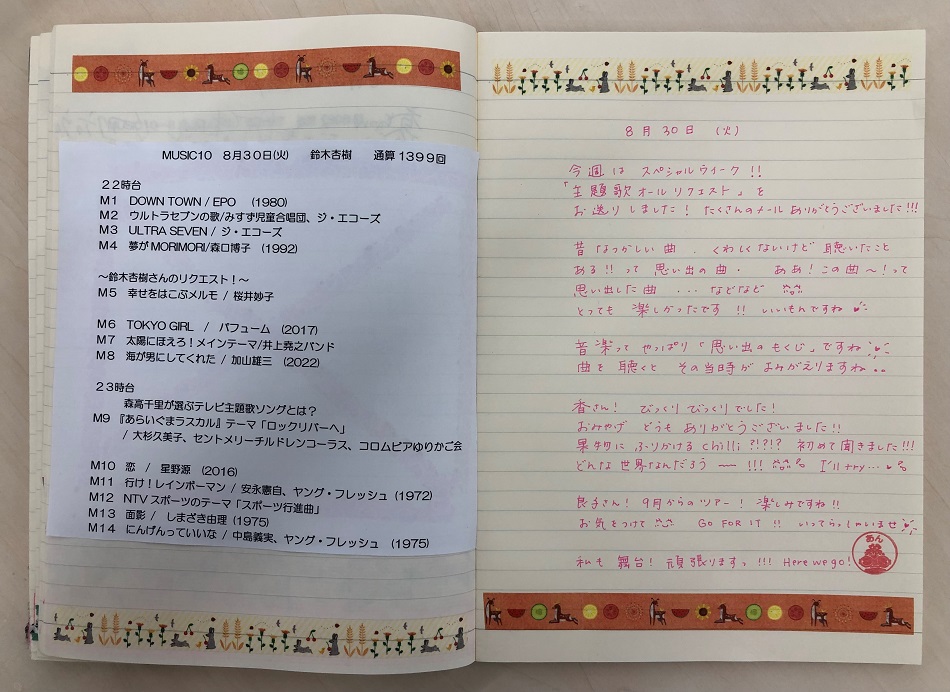 MUSIC10 8月30日(火) 鈴木杏樹 通算1399回
22時台
M1 DOWN TOWN / EPO (1980)
M2 ウルトラセブンの歌/みすず児童合唱団、ジ・エコーズ
M3 ULTRA SEVEN / ジ・エコーズ
M4 夢がMORIMORI/森口博子 (1992)
～鈴木杏樹さんのリクエスト！～
M5 幸せをはこぶメルモ / 桜井妙子
M6 TOKYO GIRL / パフューム (2017)
M7 太陽にほえろ！メインテーマ/井上堯之バンド
M8 海が男にしてくれた / 加山雄三 (2022)
23時台
森高千里が選ぶテレビ主題歌ソングとは？
M9 『あらいぐまラスカル』テーマ「ロックリバーへ」
/ 大杉久美子、セントメリーチルドレンコーラス、コロムビアゆりかご会
M10 恋 / 星野源 (2016)
M11 行け！レインボーマン / 安永憲自、ヤング・フレッシュ (1972)
M12 NTVスポーツのテーマ「スポーツ行進曲」
M13 面影 / しまざき由理 (1975)
M14 にんげんっていいな / 中島義実、ヤング・フレッシュ (1975)
8月30日 (火)
今週は スペシャルウィーク !!
「主題歌オールリクエスト」を
お送りしました！ たくさんのメール ありがとうございました!!!
昔なつかしい曲 . くわしくないけど 聴いたこと
ある!! って 思い出の曲 . ああ！この曲〜！って
思い出した曲 ... などなど
とっても 楽しかったです !! いいもんですね
音楽って やっぱり 「思い出のもくじ」ですね
曲を聴くと その当時が よみがえりますね ..
香さん！ びっくりびっくりでした！
おみやげ どうも ありがとうございました!!
果物に ふりかける chilli ?!?!? 初めて聞きました!!!
どんな世界なんだろう 〜 !!! I'll try...
良子さん！ 9月からのツアー！ 楽しみですね!!
お気をつけて GO FOR IT !! いってらっしゃいませ
私も 舞台！ 頑張りますっ !!! Here we go!
あん